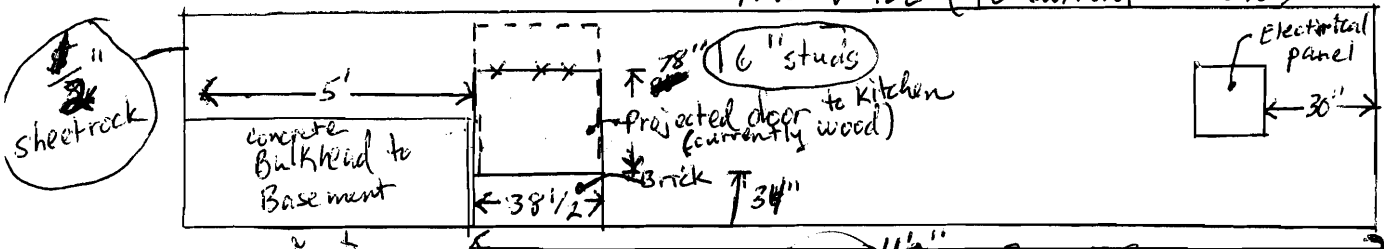 1/2" sheetrock
5'
concrete
Bulkhead to
Basement
38 1/2
78"
16" studs
Projected door to Kitchen
(currently wood)
Brick
34"
Electrical
panel
30"